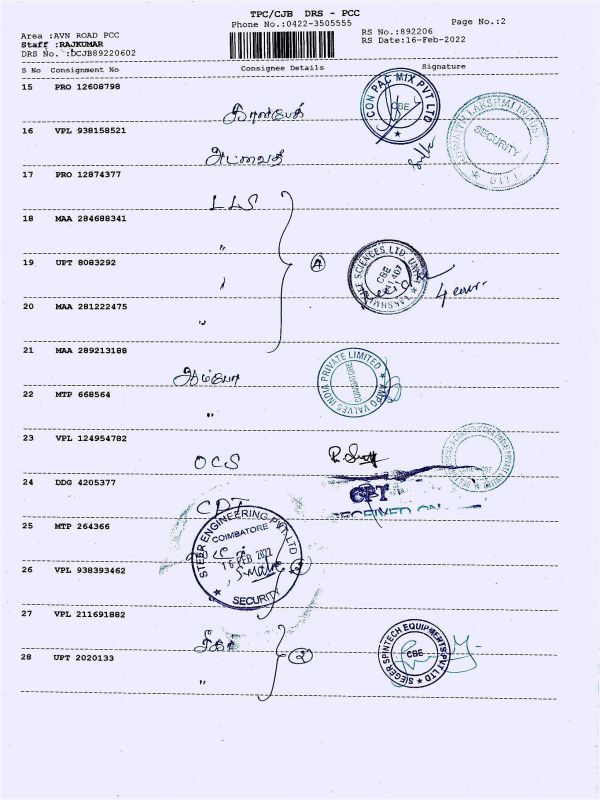 TPC/CJB DRS - PCC
Phone No.:0422-3505555
Page No.:2
Area :AVN ROAD PCC
RS No.:892206
Staff :RAJKUMAR
RS Date:16-Feb-2022
DRS No. :DCJB89220602
S No Consignment No Consignee Details Signature
15 PRO 12608798
CON PAC MIX PVT LTD
CBE
16 VPL 938158521
SECURITY
17 PRO 12874377
LLS
18 MAA 284688341
"
19 UPT 8083292
SCIENCES LTD
CBE
20 MAA 281222475
"
21 MAA 289213188
VALVES INDIA PRIVATE LIMITED
COIMBATORE
22 MTP 668564
"
23 VPL 124954782
OCS
24 DDG 4205377
CPT
CPT
RECEIVED ON
25 MTP 264366
STEER ENGINEERING PVT LTD
COIMBATORE
16 FEB 2022
SECURITY
26 VPL 938393462
27 VPL 211691882
28 UPT 2020133
"
SIEGER SPINTECH EQUIPMENTS PVT LTD
CBE